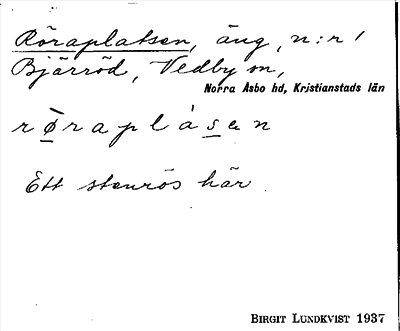 Röraplatsen, äng, n:r 1
Bjärröd, Vedby sn,
Norra Åsbo hd, Kristianstads län
rø̀raplàsen
Ett stenrös här.
BIRGIT LUNDKVIST 1937